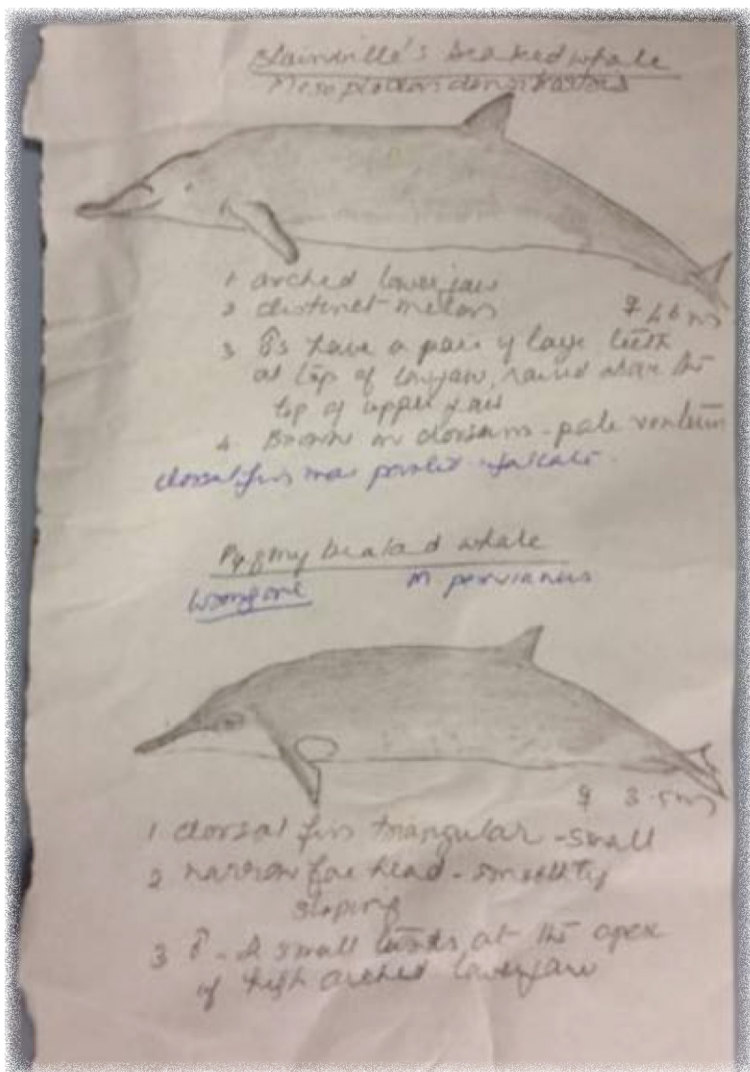 Blainville's beaked whale
Mesoplodon densirostris
1 arched lower jaw
2 distinct melon
♀ 4.6 m
3 ♂s have a pair of large teeth
at top of lowjaw, raised above the
top of upper jaw
4. Brown on dorsum - pale ventrum
dorsal fin more pointed - falcate.
Pygmy beaked whale
M peruvianus
♀ 3.5 m
1 dorsal fin triangular - small
2 narrow fore head - smoothly
sloping
3 ♂ - 2 small tusks at the apex
of high arched lower jaw